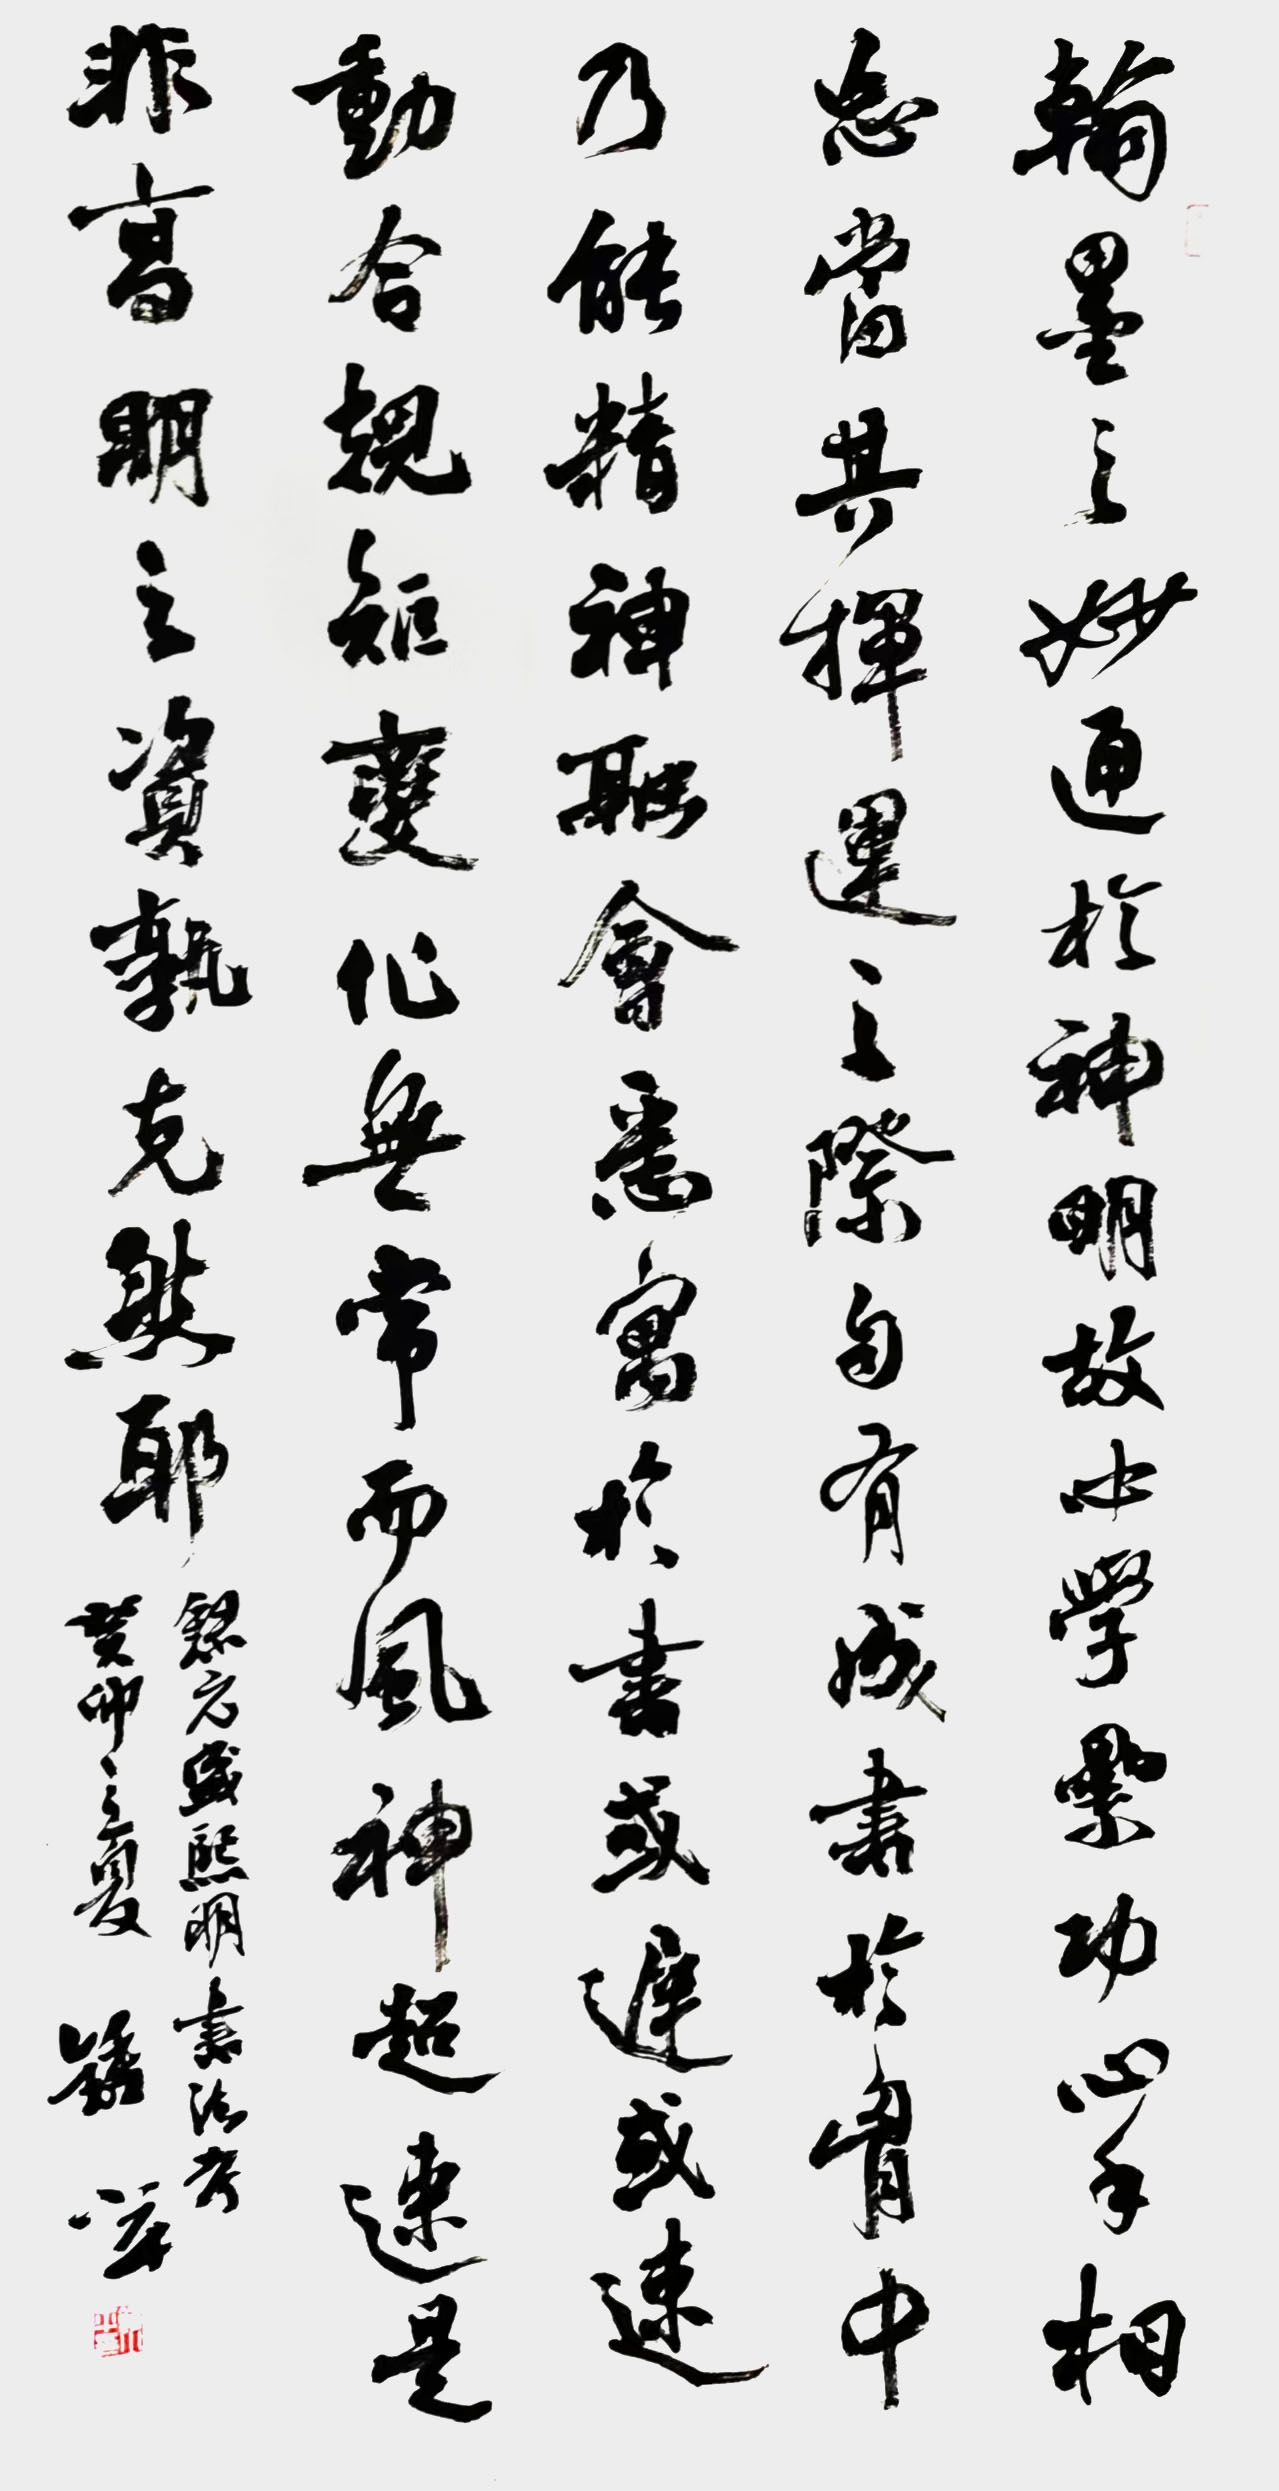 翰墨之妙通於神明故必學累功心手相
忘當其揮運之際自有成書於胷中
乃能精神融會悉寓於書或遲或速
動合規矩變化無常而風神超逸是
非高明之資孰克然耶
錄元盛熙明書法考
癸卯之夏